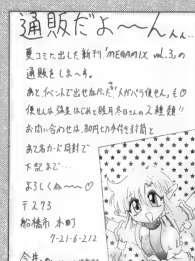 通販だよ〜〜んん..
夏コミに出した新刊「MEGAMIX vol.3」の
通販をしま〜す。
あとイベントで出せなかった「メガパラ便せん」も♡
便せんは弥生はじめと睦月冬日さんの2種類!!
お問い合わせは、80円切手を封筒と
あて名カード同封で
下記まで…
よろしくね〜〜♡
〒273
船橋市本町
7-21-6-212